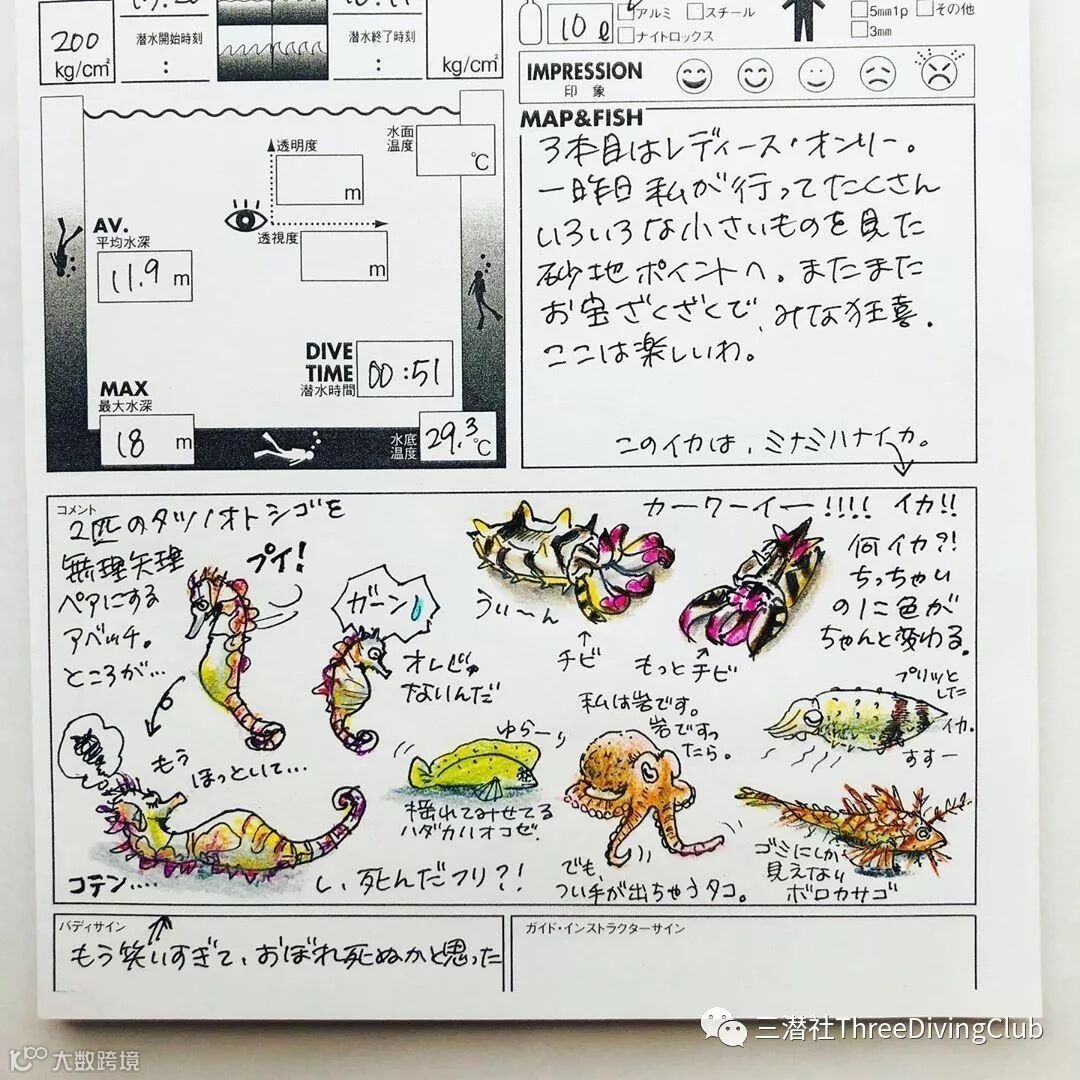 200
kg/cm²
潜水開始時刻
:
潜水終了時刻
:
kg/cm²
10ℓ
アルミ
スチール
ナイトロックス
5mm1p
その他
3mm
IMPRESSION
印象
水面
温度
℃
透明度
m
透視度
m
AV.
平均水深
11.9 m
DIVE
TIME
潜水時間
00:51
MAX
最大水深
18 m
水底
温度
29.3℃
MAP&FISH
3本目はレディース・オンリー。
一昨日私が行ってたくさん
いろいろな小さいものを見た
砂地ポイントへ。またまた
お宝ざくざくで、みな狂喜.
ここは楽しいわ。
このイカは、ミナミハナイカ。
コメント
2匹のタツノオトシゴを
無理矢理
ペアにする
アベッチ。
ところが…
プイ!
ガーン
オレじゃ
ないんだ
もう
ほっといて…
コテン....
し、死んだフリ?!
カーワーイー!!!! イカ!!
何イカ?!
ちっちゃい
のに色が
ちゃんと変わる。
うぃ〜ん
チビ
もっとチビ
プリッと
した
イカ.
すすー
ゆらーり
揺れてみせてる
ハダカハオコゼ.
私は岩です。
岩ですっ
たら。
でも、
つい手が出ちゃうタコ。
ゴミにしか
見えない
ボロカサゴ
バディサイン
もう笑いすぎて、おぼれ死ぬかと思った
ガイド・インストラクターサイン
三潜社ThreeDivingClub
大数跨境